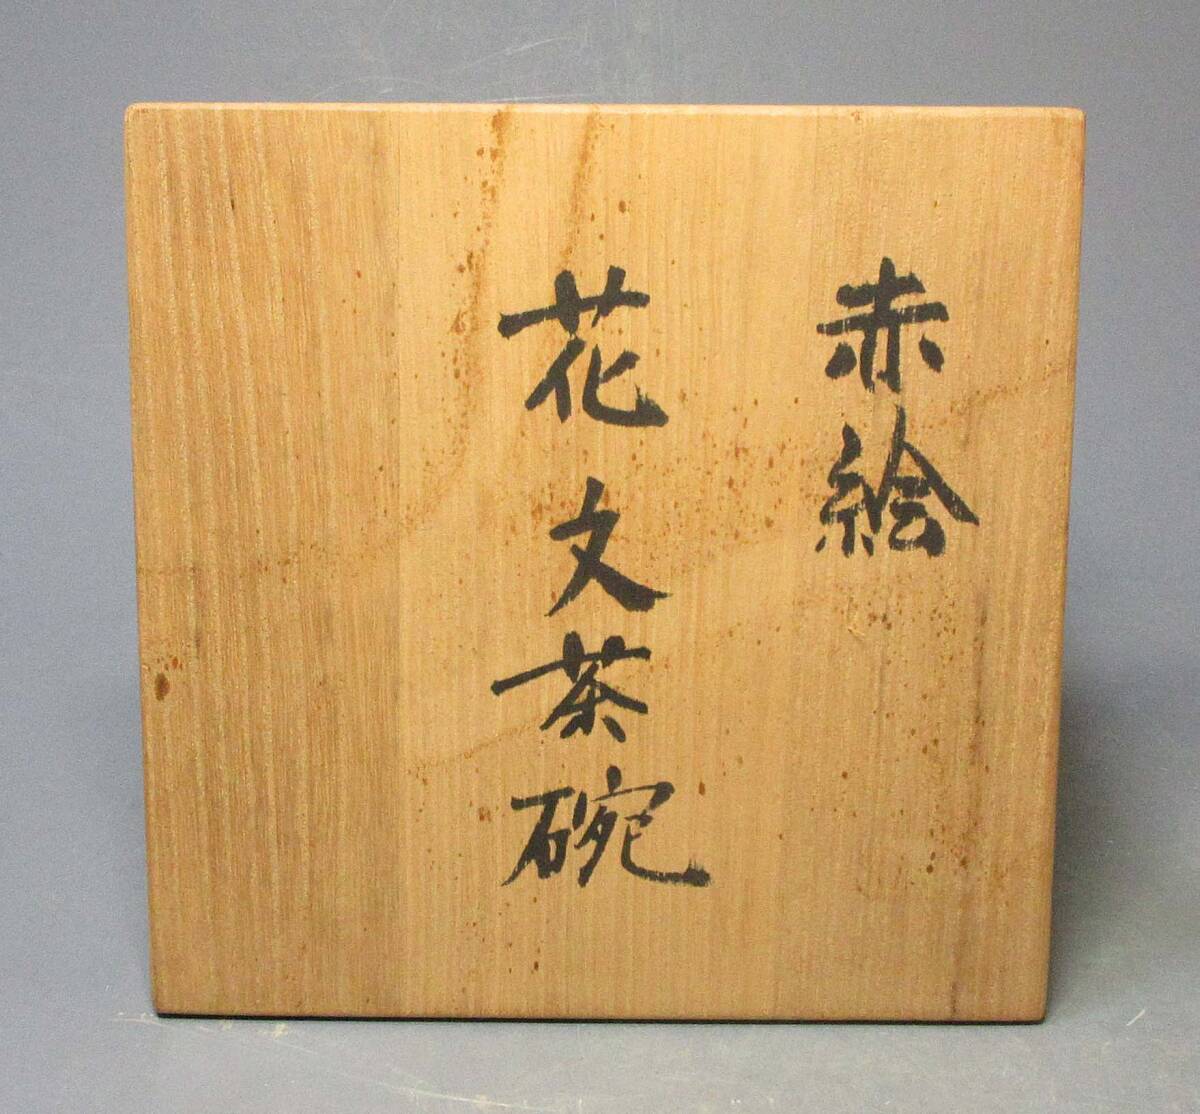 赤絵
花文茶碗